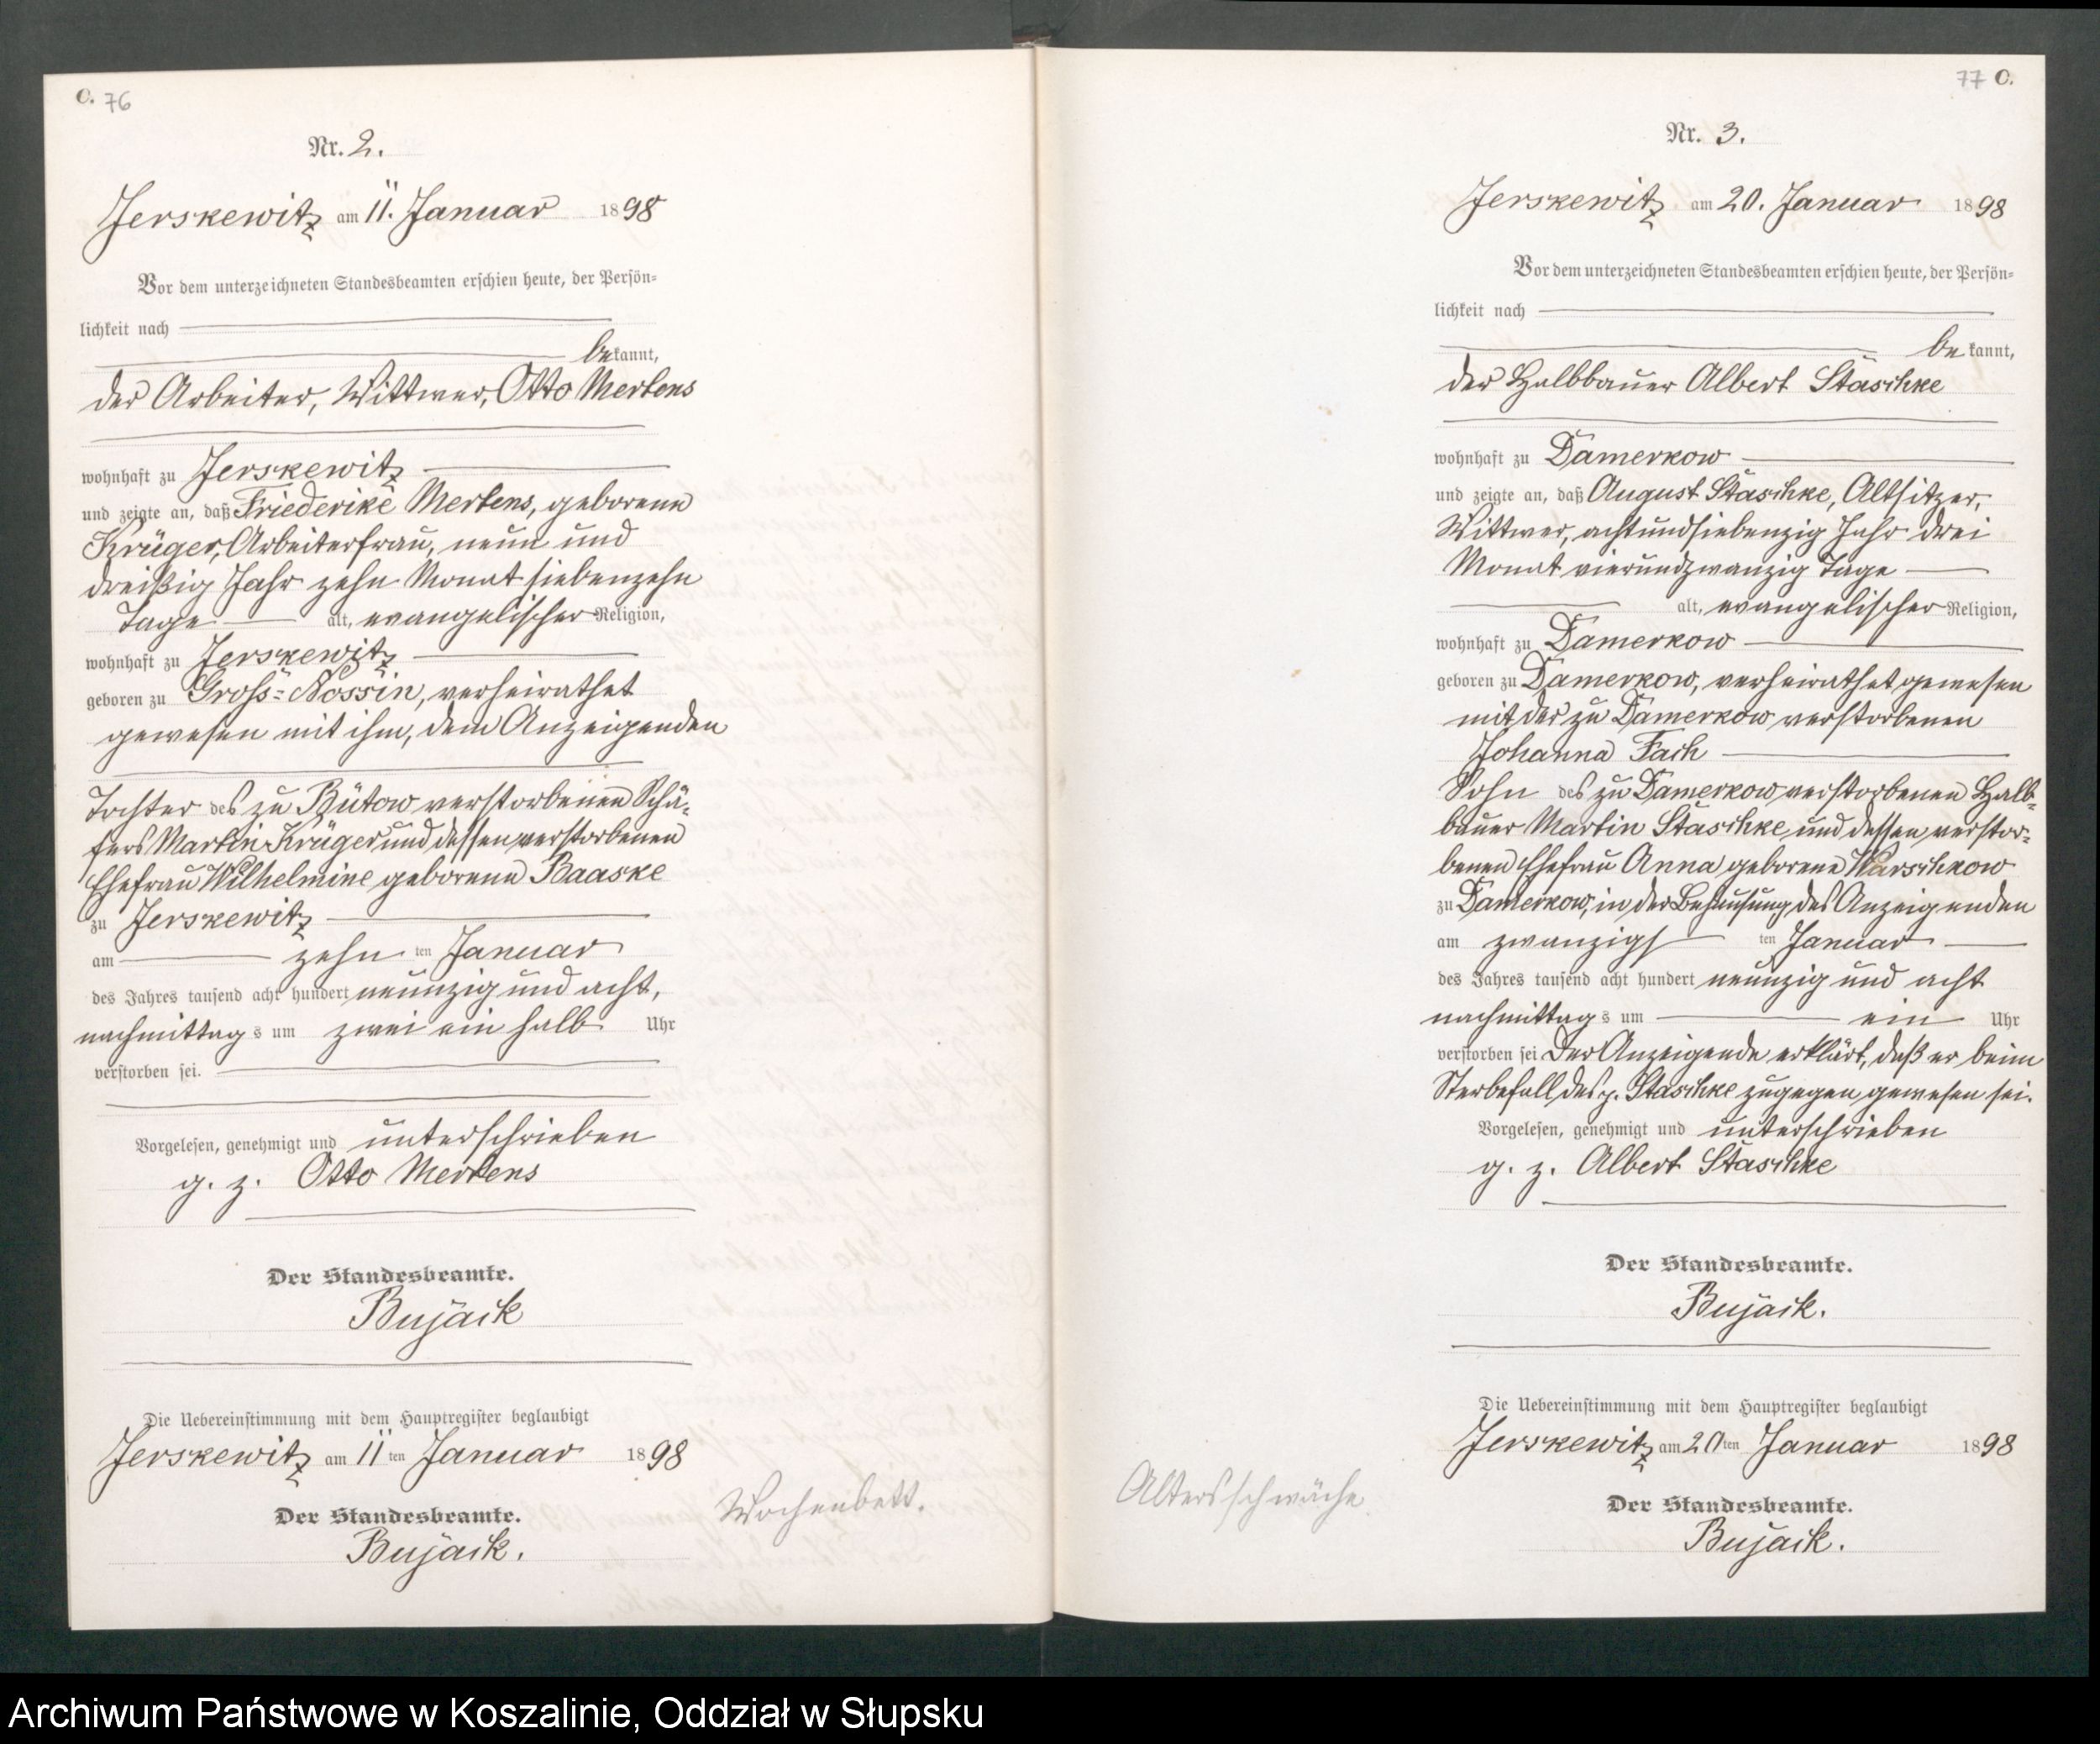 C. 76
Nr. 2.
Jerskewitz am 11. Januar 1898
Vor dem unterzeichneten Standesbeamten erschien heute, der Persön-
lichkeit nach
bekannt,
der Arbeiter, Wittwer, Otto Mertens
wohnhaft zu Jerskewitz
und zeigte an, daß Friederike Mertens, geborene
Krüger, Arbeiterfrau, neun und
dreißig Jahr zehn Monat siebenzehn
Tage alt, evangelischer Religion,
wohnhaft zu Jerskewitz
geboren zu Gross-Nossin, verheirathet
gewesen mit ihm, dem Anzeigenden
Tochter des zu Bütow verstorbenen Schä-
fers Martin Krüger und dessen verstorbenen
Ehefrau Wilhelmine geborene Baaske
zu Jerskewitz
am zehn ten Januar
des Jahres tausend acht hundert neunzig und acht,
nachmittags um zwei ein halb Uhr
verstorben sei.
Vorgelesen, genehmigt und unterschrieben
g. z. Otto Mertens
Der Standesbeamte.
Bujack
Die Uebereinstimmung mit dem Hauptregister beglaubigt
Jerskewitz am 11ten Januar 1898
Der Standesbeamte.
Bujack.
Wochenbett.
77 C.
Nr. 3.
Jerskewitz am 20. Januar 1898
Vor dem unterzeichneten Standesbeamten erschien heute, der Persön-
lichkeit nach
bekannt,
der Halbbauer Albert Staschke
wohnhaft zu Damerkow
und zeigte an, daß August Staschke, Altsitzer,
Wittwer, achtundsiebenzig Jahr drei
Monat vierundzwanzig Tage
alt, evangelischer Religion,
wohnhaft zu Damerkow
geboren zu Damerkow, verheirathet gewesen
mit der zu Damerkow verstorbenen
Johanna Fach
Sohn des zu Damerkow verstorbenen Halb-
bauer Martin Staschke und dessen verstor-
benen Ehefrau Anna geborene Warschkow
zu Damerkow, in der Behausung des Anzeigenden
am zwanzigs ten Januar
des Jahres tausend acht hundert neunzig und acht
nachmittags um ein Uhr
verstorben sei Der Anzeigende erklärt, daß er beim
Sterbefall des p. Staschke zugegen gewesen sei.
Vorgelesen, genehmigt und unterschrieben
g. z. Albert Staschke
Der Standesbeamte.
Bujack.
Die Uebereinstimmung mit dem Hauptregister beglaubigt
Jerskewitz am 20ten Januar 1898
Der Standesbeamte.
Bujack.
Altersschwäche.
Archiwum Państwowe w Koszalinie, Oddział w Słupsku